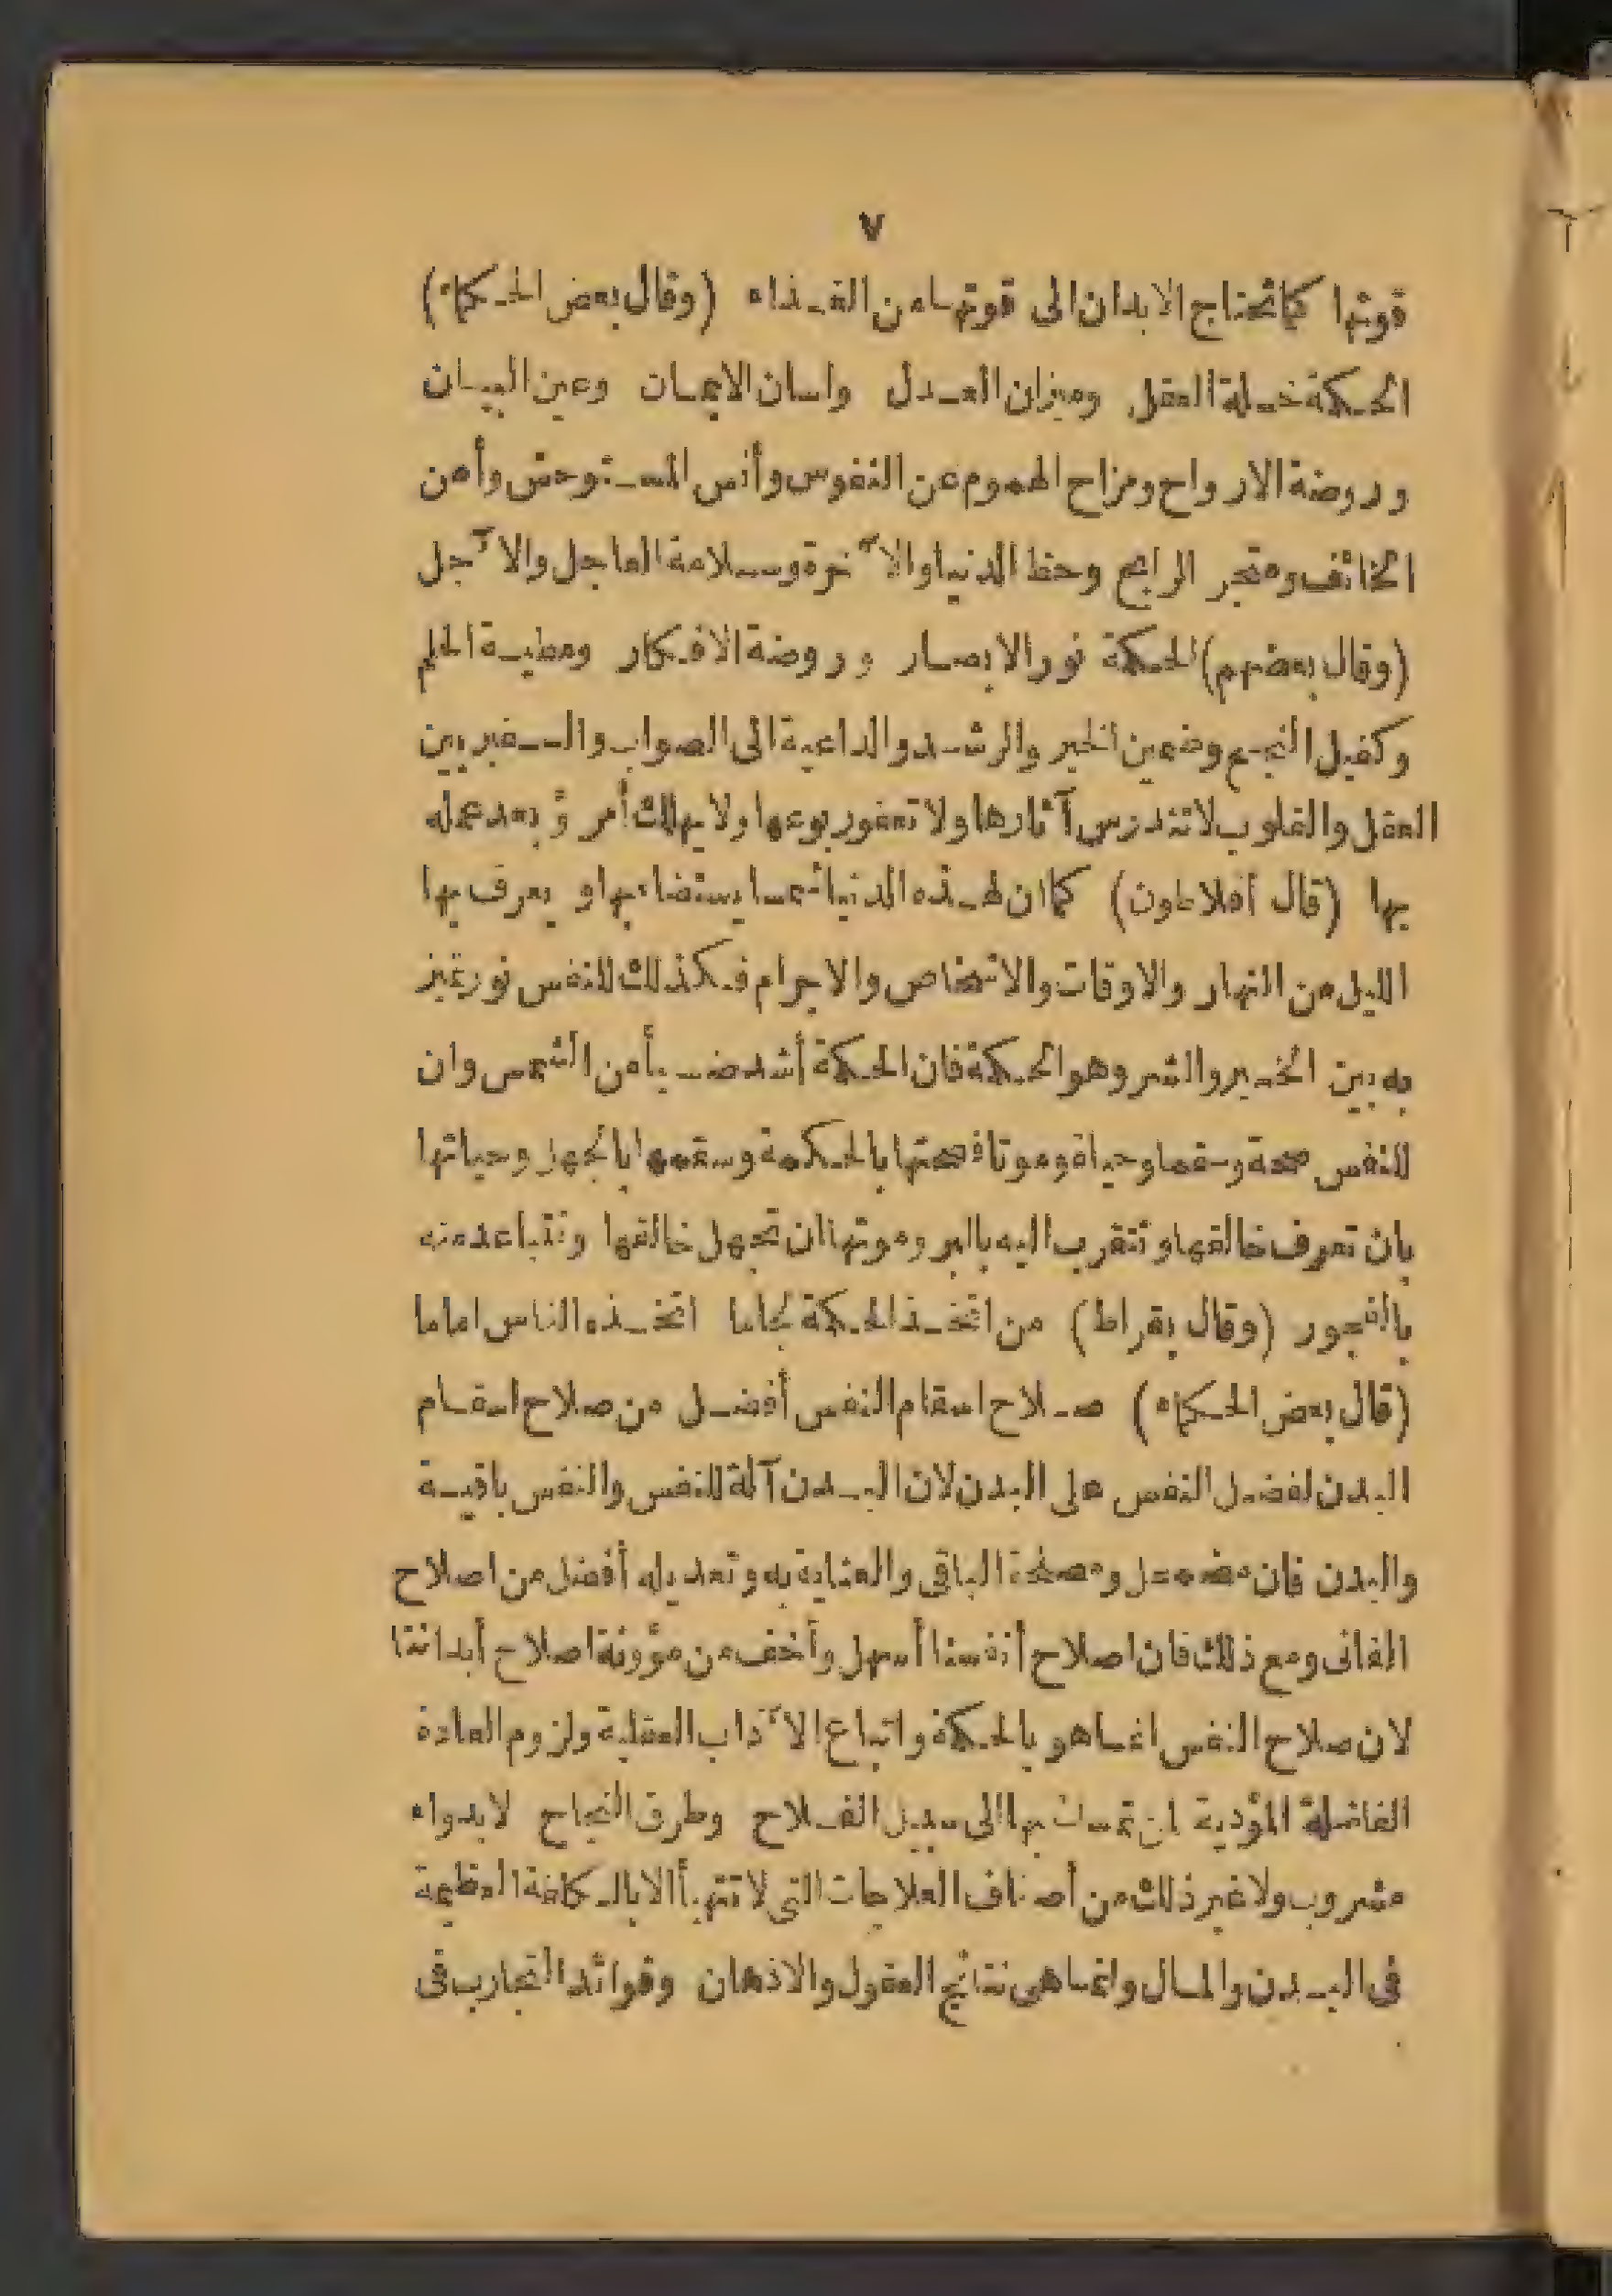 ٧
قوتها كما تحتاج الابدان الى قوتها من الغذاء (وقال بعض الحكماء)
الحكمة خلة العقل وميزان العدل ولسان الايمان وعين البيان
وروضة الارواح ومزاح الهموم عن النفوس وأنس المستوحش وأمن
الخائف ومتجر الرابح وحظ الدنيا والآخرة وسلامة العاجل والآجل
(وقال بعضهم) الحكمة نور الابصار وروضة الافكار ومطية الحلم
وكفيل النجح وضمين الخير والرشد والداعية الى الصواب والسفير بين
العقل والقلوب لا تندرس آثارها ولا تعفو ربوعها ولا يهلك أمرؤ بعد عمله
بها (قال أفلاطون) كما ان لهذه الدنيا شمسا يستضاء بها و يعرف بها
الليل من النهار والاوقات والاشخاص والاجرام فكذلك للنفس نور تميز
به بين الخير والشر وهو الحكمة فان الحكمة أشد ضيأ من الشمس وان
للنفس صحة وسقما وحياة وموتا فصحتها بالحكمة وسقمها بالجهل وحياتها
بان تعرف خالقها وتتقرب اليه بالبر وموتها ان تجهل خالقها وتتباعد منه
بالفجور (وقال بقراط) من اتخذ الحكمة لجاما اتخذه الناس اماما
(قال بعض الحكماء) صلاح اسقام النفس أفضل من صلاح اسقام
البدن لفضل النفس على البدن لان البدن آلة للنفس والنفس باقية
والبدن فان مضمحل ومصلحة الباقى والعناية به وتعديله أفضل من اصلاح
الفانى ومع ذلك فان اصلاح أنفسنا أسهل وأخف من مؤونة اصلاح أبداننا
لان صلاح النفس انما هو بالحكمة واتباع الآداب العقلية ولزوم العادة
الفاضلة المؤدية لمن تمسك بها الى سبيل الفلاح وطرق النجاح لا بدواء
مشروب ولا غير ذلك من أصناف العلاجات التى لا تتهيأ الا بالكلفة العظيمة
فى البدن والمال وانما هى نتائج العقول والاذهان وفوائد التجارب فى